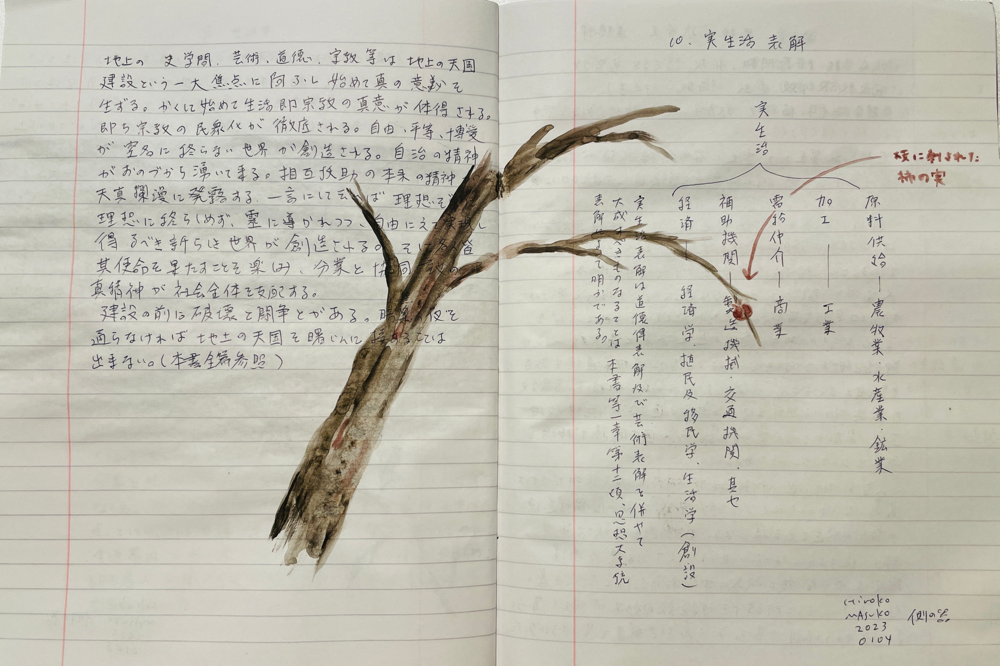 地上の 文学問、芸術、道徳、宗教等は地上の天国
建設という一大焦点に向ふし始めて真の意義を
生ずる。かくして始めて生活即宗教の真意が体得される。
即ち宗教の民衆化が徹底される。自由、平等、博愛
が空名に終らない世界が創造される。自治の精神
がおのづから湧いて来る。相互扶助の本来の精神
天真爛漫に発露する。一言にして云へば理想を
理想に終らしめず、霊に導かれつつ、自由に
得るべき新らしき世界が創造される
其使命を果たすことを楽しみ、分業と協同
真精神が社会全体を支配する。
建設の前に破壊と闘争とがある。暗夜を
通らなければ地上の天国を曙しんに
出来ない。(本書全篇参照)
10. 実生活表解
実生活
枝に刺された
柿の実
原料供給―農牧業・水産業・鉱業
加工――工業
需給仲介―商業
補助機関―製造機械・交通機関、其他
経済―経済学、植民及移民学、生活学(創設)
実生活表解は道徳表解及び芸術表解を併せて
大成すべきものなることは、本書第一章第十二項、思想大系統
表解はて明かである。
Hiroko
MAsuko
2023
0104